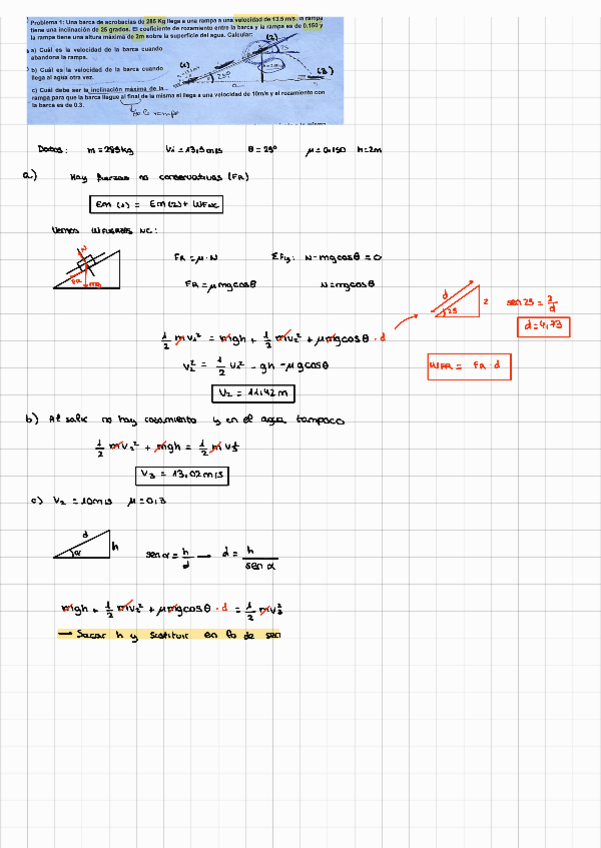 Problema 1: Una barca de acrobacias de 285 Kg llega a una rampa a una velocidad de 13.5 m/s. la rampa
tiene una inclinación de 25 grados. El coeficiente de rozamiento entre la barca y la rampa es de 0.150 y
la rampa tiene una altura máxima de 2m sobre la superficie del agua. Calcular:
a) Cuál es la velocidad de la barca cuando
abandona la rampa.
b) Cuál es la velocidad de la barca cuando
llega al agua otra vez.
c) Cuál debe ser la inclinación máxima de la
rampa para que la barca llegue al final de la misma si llega a una velocidad de 10m/s y el rozamiento con
la barca es de 0.3.
(1) (2) (3)
25º
rampa
Datos: m = 285kg Vi = 13,5m/s θ = 25º μ = 0.150 h = 2m
a) Hay fuerzas no conservativas (FR)
Em (1) = Em (2) + WFNC
Vemos WFuerzas NC:
N FR mg
FR = μ · N ΣFy: N - mgcosθ = 0
FR = μmgcosθ N = mgcosθ
d 2 25 sen 25 = 2/d
d = 4,73
1/2 mv₁² = mgh + 1/2 mv₂² + μmgcosθ · d
WFR = FR · d
v₂² = 1/2 v₁² - gh - μgcosθ
V₂ = 11,42 m
b) Al salir no hay rozamiento y en el agua tampoco
1/2 mv₂² + mgh = 1/2 mv₃²
V₃ = 13,02 m/s
c) V₂ = 10m/s μ = 0,3
d h α sen α = h/d → d = h/sen α
mgh + 1/2 mv₂² + μmgcosθ · d = 1/2 mv₃²
→ Sacar h y sustituir en la de sen